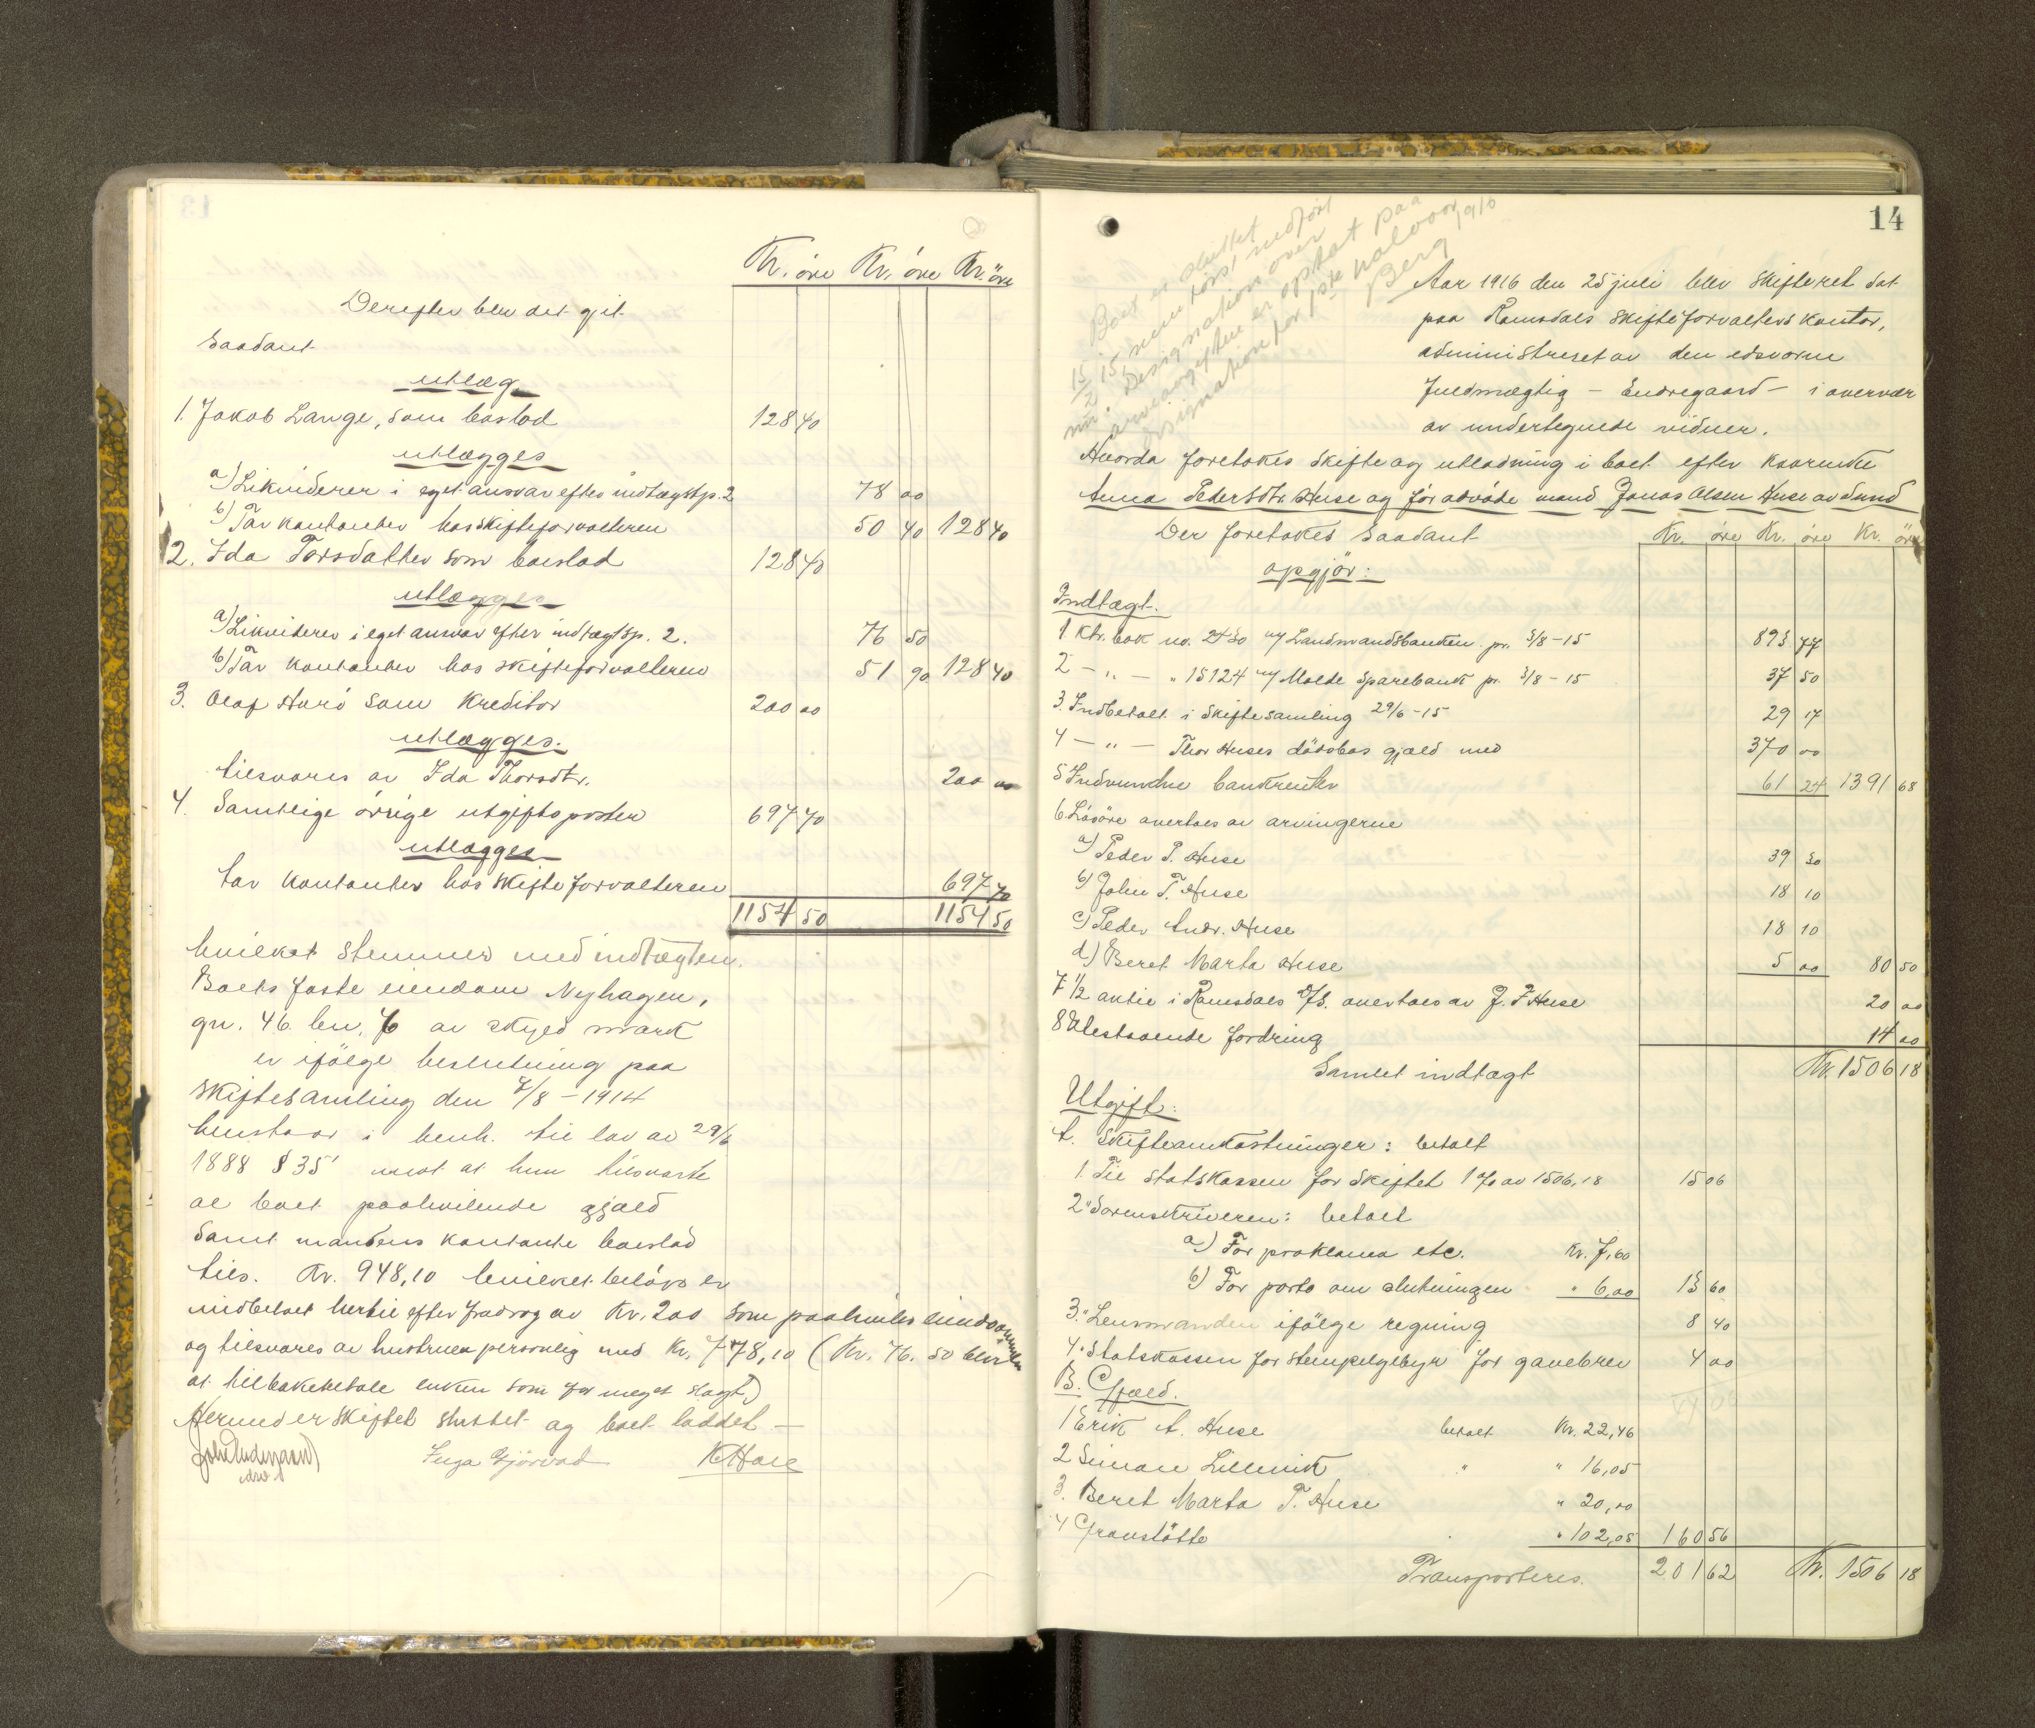 Kr. øre Kr. øre Kr. øre
Derefter blev det git
saadant
utlæg
1. Jakob Lange, som boslod 128 40
utlægges
a) Likviderer i eget ansvar efter indtægtsp. 2 78 00
b) Tar kontanter hos skifteforvalteren 50 40 128 40
2. Ida Torsdatter som boslod 128 40
utlægges
a) Likviderer i eget ansvar efter indtægtsp. 2. 76 50
b) Tar kontanter hos skifteforvalteren 51 90 128 40
3. Olaf Harø som kreditor 200 00
utlægges.
tilsvares av Ida Thorsdtr. 200 00
4. Samtlige øvrige utgiftsposter 697 70
utlægges
tar kontanter hos skifteforvalteren 697 70
1154 50 1154 50
hvilket stemmer med indtægten.
Boets faste eiendom Nyhagen,
gn. 46 bn. 76 av skyld mark
er ifølge beslutning paa
skiftesamling den 7/8 - 1914
henstaar i henh. til lov av 29/6
1888 § 35 mot at hun tilsvarte
al boet paahvilende gjæld
samt mandens kontante boslod
tils. Kr. 948,10 hvilket beløp er
indbetalt hertil efter fradrag av Kr. 200 som paahviler eiendommen
og tilsvares av hustruen personlig med Kr. 748,10 (Kr. 76.50 blev
at tilbakebetale enken som for meget erlagt)
Hermed er skiftet sluttet og boet loddet —
Inga Gjørvad KHoel
14
Boet er sluttet
15/2 15, nu
Designation over
arveavgiften er opført paa
designation for 1ste halvaar 1916
Berg
Aar 1916 den 25 juli blev skifteret sat
paa Romsdals skifteforvalters kontor,
administreret av den edsvorne
fuldmægtig – Endregaard – i overvær
av undertegnede vidner.
Hvorda foretokes skifte og utlodning i boet efter kaarenke
Anna Pedersdtr. Huse og før avdøde mand Jonas Olsen Huse av Sund
Der foretokes saadant Kr. øre Kr. øre Kr. øre
opgjør:
Indtægt.
1 Ktr. bok no. 2430 m/ Landmandsbanken pr. 3/8-15 893 77
2 — " — " 15124 m/ Molde Sparebank pr. 3/8-15 37 50
3. Indbetalt i skiftesamling 29/6-15 29 17
4 — " — Thor Huses dødsbos gjæld med 370 00
5 Indvundne bankrenter 61 24 1391 68
6. Løsøre overtoes av arvingerne
a) Peder P. Huse 39 30
b) John P. Huse 18 10
c) Peder Andr. Huse 18 10
d) Beret Marta Huse 5 00 80 50
7 1/2 aktie i Romsdals D/S. overtoes av J. P. Huse 20 00
8 Utestaaende fordring 14 00
Samlet indtægt Kr. 1506 18
Utgift:
A. Skifteomkostninger: betalt
1. Til Statskassen for skiftet 1 % av 1506,18 15 06
2 " Sorenskriveren: betalt
a) For proklama etc. Kr. 7,60
b) For porto om slutningen " 6,00 13 60
3 " Lensmanden ifølge regning 8 40
4 " Statskassen for stempelgebyr for gavebrev 4 00
B. Gjæld.
1 Erik A. Huse betalt Kr. 22,46
2 Simon Lillevik " " 16,05
3. Beret Marta P. Huse " 20,00
4 Gravstøtte " 102,05 160 56
Transporteres. 201 62 Kr. 1506 18